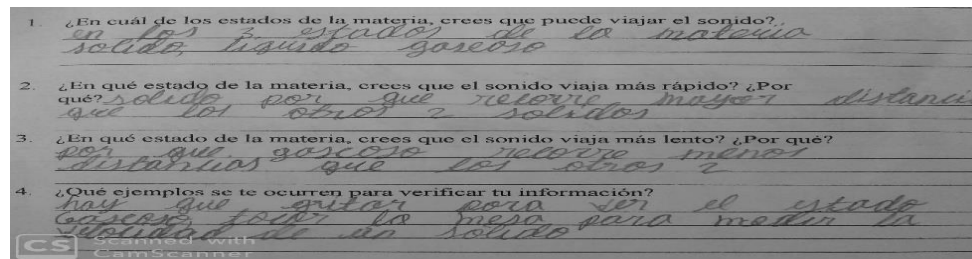 1. ¿En cuál de los estados de la materia, crees que puede viajar el sonido?
en los 3 estados de la materia
solido, liquido gaseoso
2. ¿En qué estado de la materia, crees que el sonido viaja más rápido? ¿Por
qué? solido por que recorre mayor distanci
que los otros 2 solidos
3. ¿En qué estado de la materia, crees que el sonido viaja más lento? ¿Por qué?
por que gascoso recorre menos
distancias que los otros 2
4. ¿Qué ejemplos se te ocurren para verificar tu información?
hay que gritar para ver el estado
Gaseoso tocar la mesa para medir la
velocidad de un solido
CS Scanned with
CamScanner